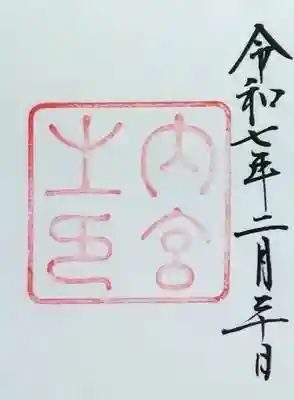 令和七年二月二十日
内宮
之印